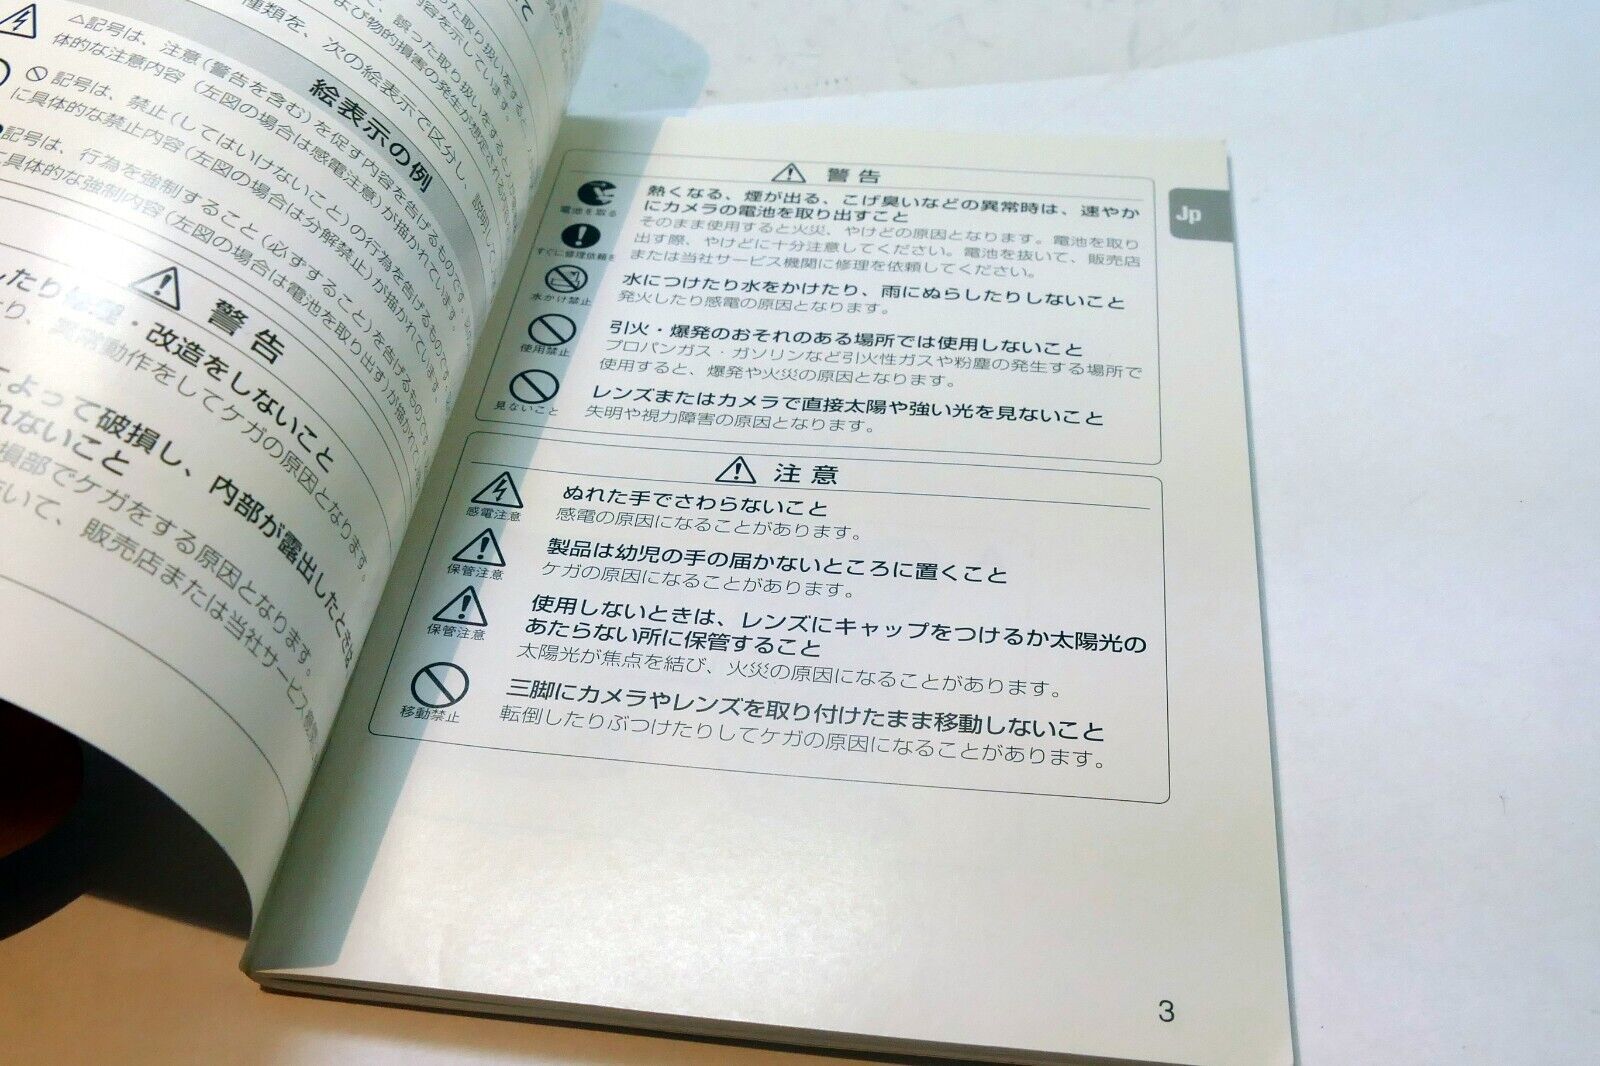 いて
った取り扱いをすると
内容を示しています。
て、誤った取り扱いをすると
よび物的損害の発生が想定される内容
種類を、次の絵表示で区分し、説明して
絵表示の例
△記号は、注意(警告を含む)を促す内容を告げるものです。
体的な注意内容(左図の場合は感電注意)が描かれています。
記号は、禁止(してはいけないこと)の行為を告げるものです。
に具体的な禁止内容(左図の場合は分解禁止)が描かれています。
記号は、行為を強制すること(必ずすること)を告げるものです。
具体的な強制内容(左図の場合は電池を取り出す)が描かれて
警告
したり修理・改造をしないこと
たり、異常動作をしてケガの原因となります。
よって破損し、内部が露出したときは
れないこと
損部でケガをする原因となります。
抜いて、販売店または当社サービス機関
Jp
警告
電池を取る
すぐに修理依頼を
熱くなる、煙が出る、こげ臭いなどの異常時は、速やか
にカメラの電池を取り出すこと
そのまま使用すると火災、やけどの原因となります。電池を取り
出す際、やけどに十分注意してください。電池を抜いて、販売店
または当社サービス機関に修理を依頼してください。
水かけ禁止
水につけたり水をかけたり、雨にぬらしたりしないこと
発火したり感電の原因となります。
使用禁止
引火・爆発のおそれのある場所では使用しないこと
プロパンガス・ガソリンなど引火性ガスや粉塵の発生する場所で
使用すると、爆発や火災の原因となります。
見ないこと
レンズまたはカメラで直接太陽や強い光を見ないこと
失明や視力障害の原因となります。
注意
感電注意
ぬれた手でさわらないこと
感電の原因になることがあります。
保管注意
製品は幼児の手の届かないところに置くこと
ケガの原因になることがあります。
保管注意
使用しないときは、レンズにキャップをつけるか太陽光の
あたらない所に保管すること
太陽光が焦点を結び、火災の原因になることがあります。
移動禁止
三脚にカメラやレンズを取り付けたまま移動しないこと
転倒したりぶつけたりしてケガの原因になることがあります。
3